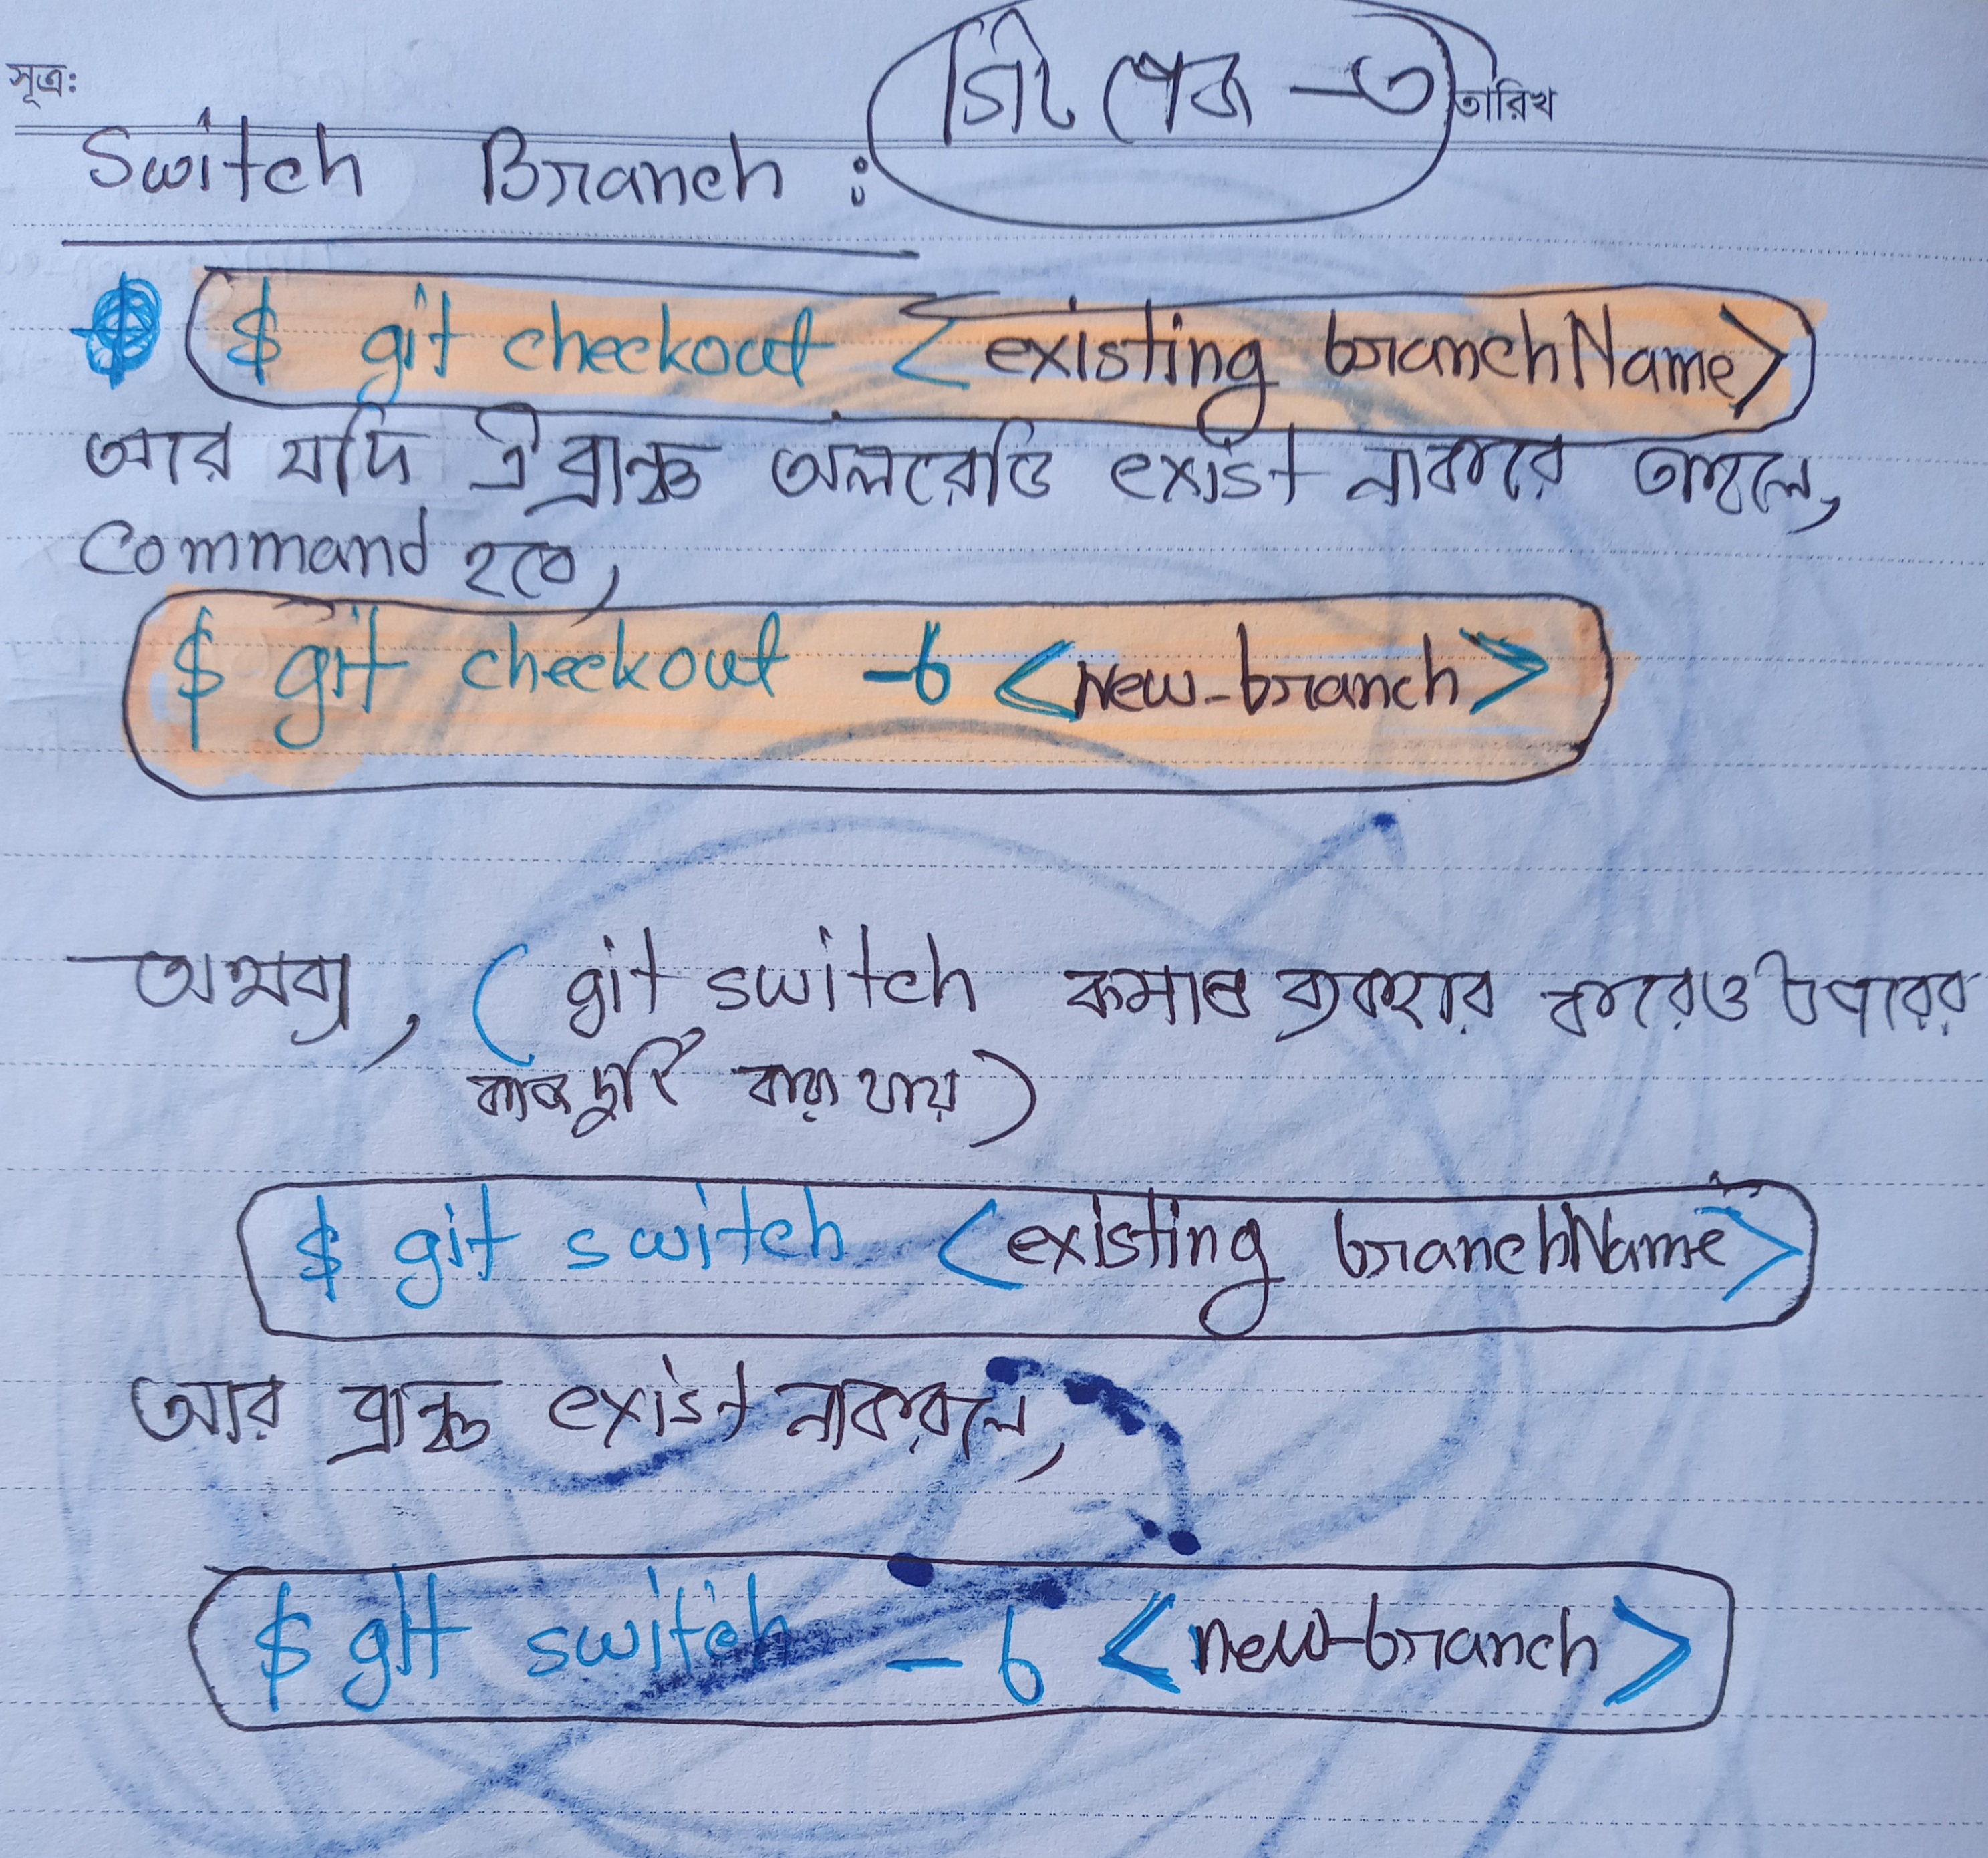 সূত্রঃ
গিট পেজ -৩
তারিখ
Switch Branch :
$ git checkout <existing branchName>
আর যদি ঐ ব্রাঞ্চ অলরেডি exist না করে তাহলে,
Command হবে,
$ git checkout -b <new-branch>
অথবা, (git switch কমান্ড ব্যবহার করেও উপরের
কাজ দুটি করা যায়)
$ git switch <existing branchName>
আর ব্রাঞ্চ exist না করলে,
$ git switch - b <new-branch>